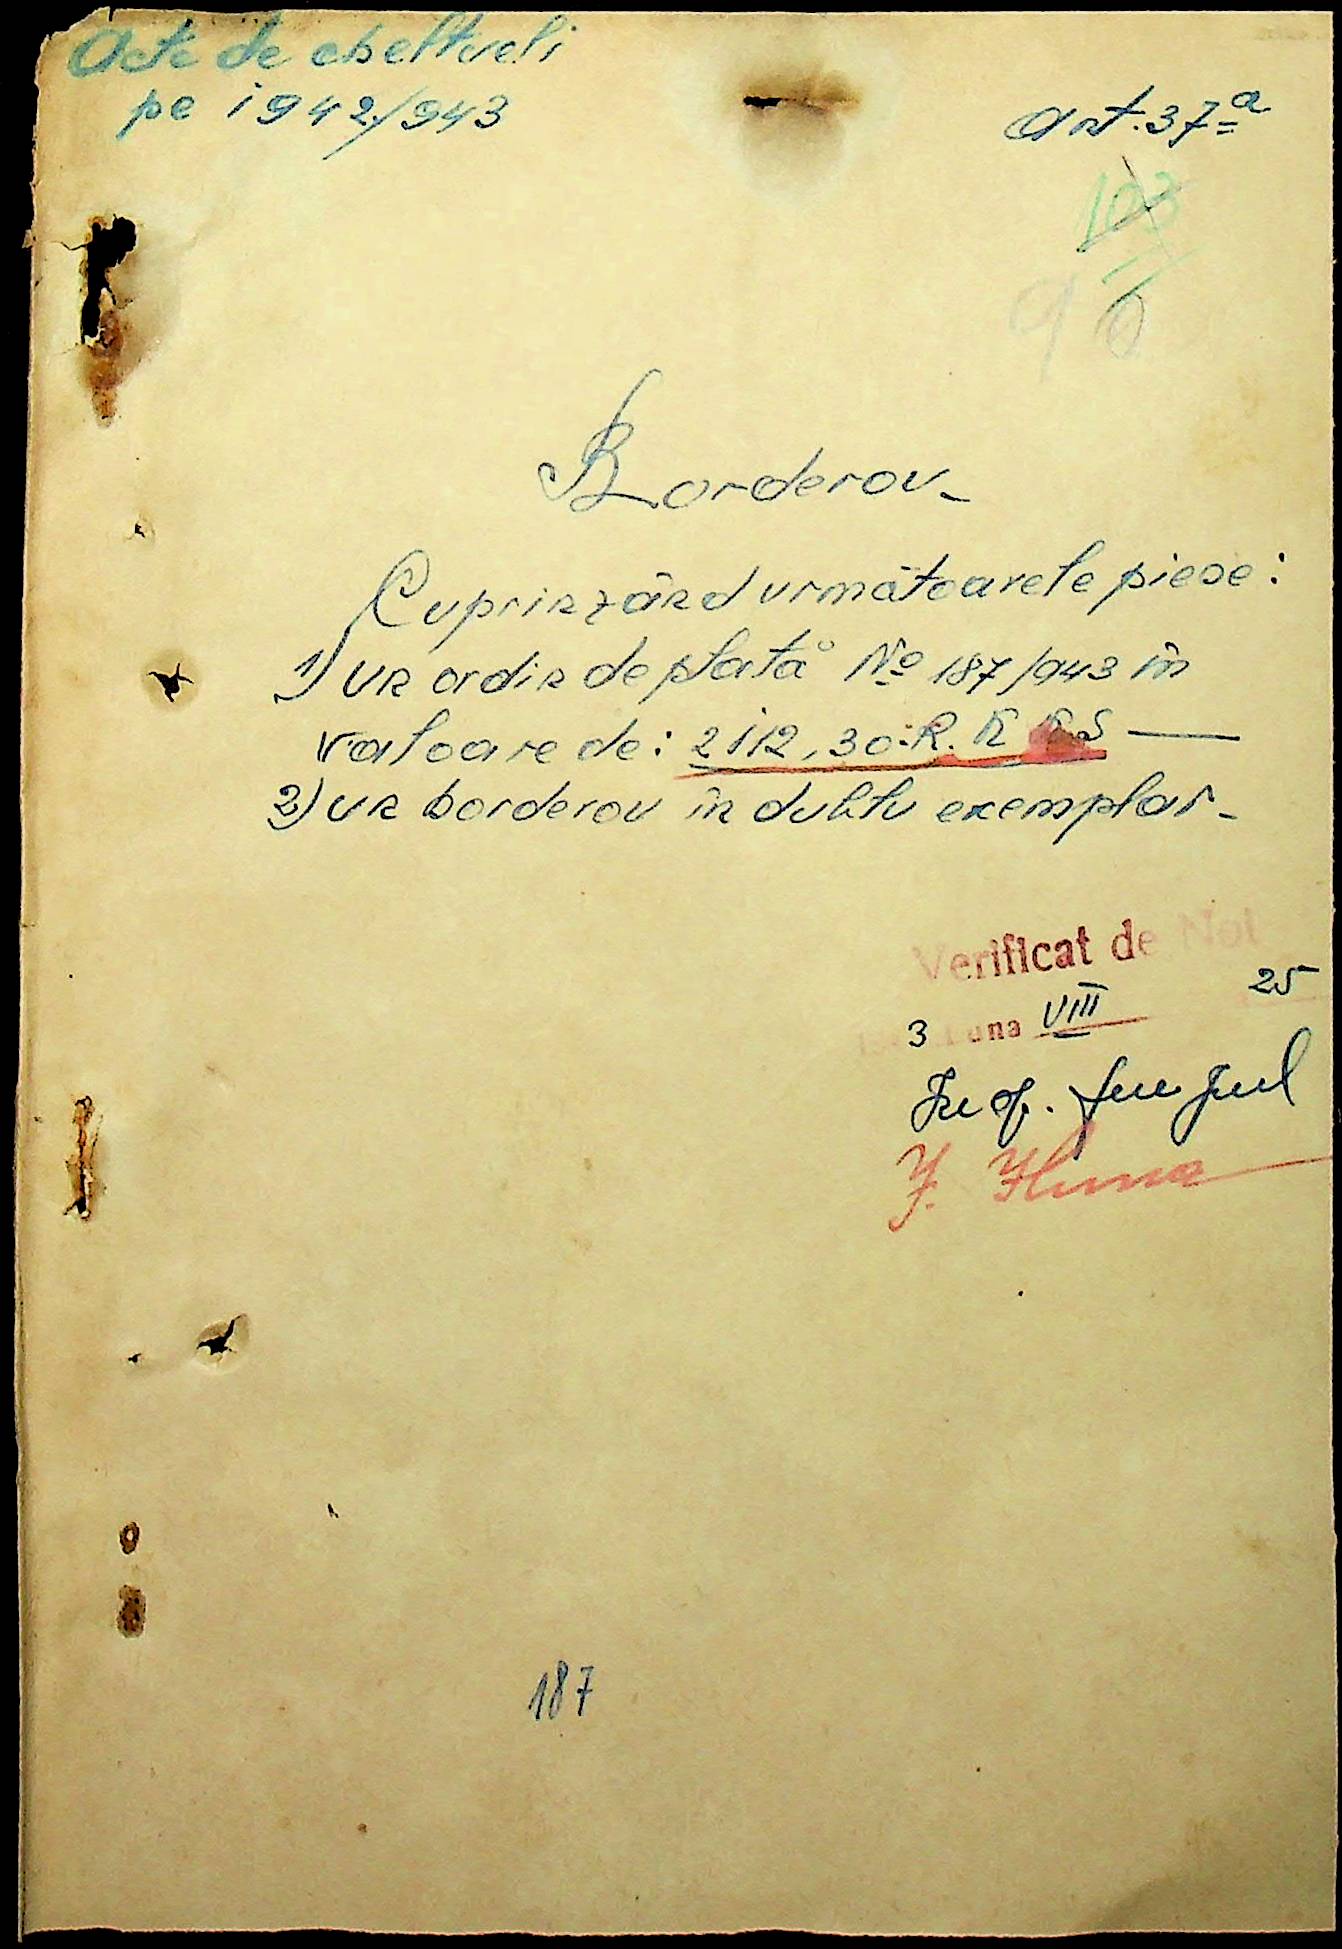 Acte de cheltueli
pe 1942/943
art. 37ª
103
96
Borderou-
Cuprinzând următoarele piese:
1) un ordin de plată № 187/943 în
valoare de: 2112,30 R. K. K. S —
2) un borderou în dublu exemplar-
Verificat de Noi
3 Luna VIII 25
187